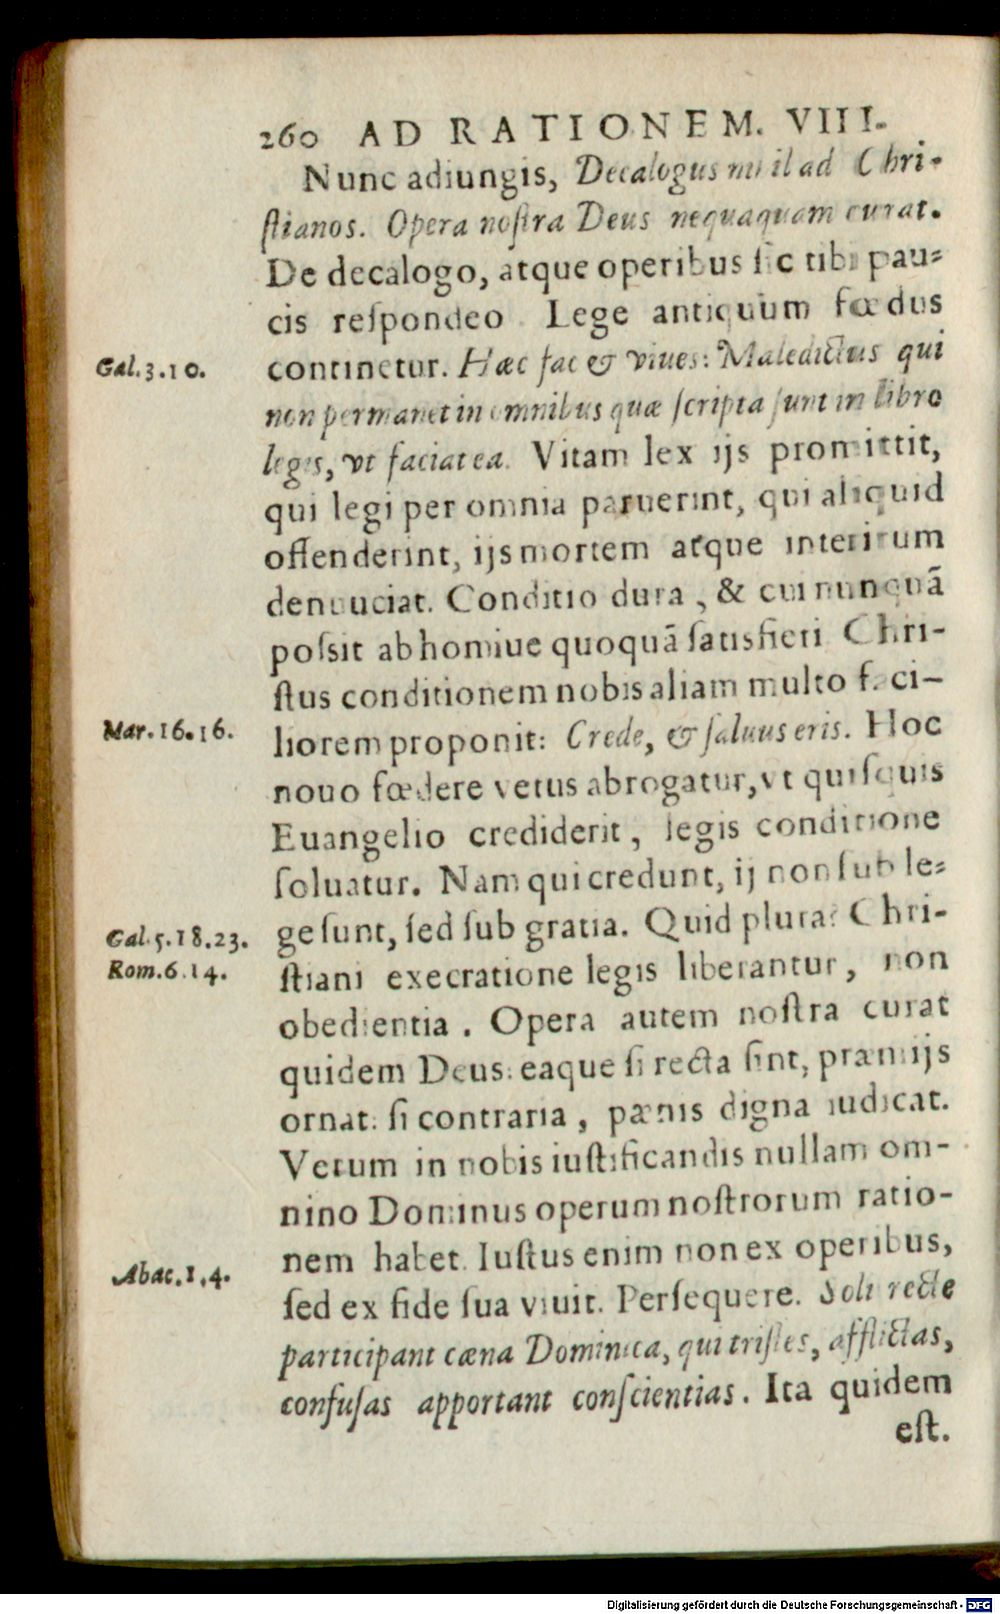 260 AD RATIONEM. VIII.
Nunc adiungis, Decalogus nihil ad Chri-
ſtianos. Opera noſtra Deus nequaquam curat.
De decalogo, atque operibus ſic tibi pau-
cis reſpondeo. Lege antiquum fœdus
Gal.3.10.
continetur. Hæc fac & viues: Maledictus qui
non permanet in omnibus quæ ſcripta ſunt in libro
legis, vt faciat ea. Vitam lex ijs promittit,
qui legi per omnia paruerint, qui aliquid
offenderint, ijs mortem atque interitum
denuuciat. Conditio dura, & cui nunquã
poſsit ab homiue quoquã ſatisfieri Chri-
ſtus conditionem nobis aliam multo faci-
Mar.16.16.
liorem proponit: Crede, & ſaluus eris. Hoc
nouo fœdere vetus abrogatur, vt quiſquis
Euangelio crediderit, legis conditione
ſoluatur. Nam qui credunt, ij non ſub le-
Gal.5.18.23.
ge ſunt, ſed ſub gratia. Quid plura? Chri-
Rom.6.14.
ſtiani execratione legis liberantur, non
obedientia. Opera autem noſtra curat
quidem Deus: eaque ſi recta ſint, præmijs
ornat: ſi contraria, pænis digna iudicat.
Verum in nobis iuſtificandis nullam om-
nino Dominus operum noſtrorum ratio-
nem habet. Iuſtus enim non ex operibus,
Abac.1.4.
ſed ex fide ſua viuit. Perſequere. Soli recte
participant cæna Dominica, qui triſtes, afflictas,
confuſas apportant conſcientias. Ita quidem
eſt.
Digitalisierung gefördert durch die Deutsche Forschungsgemeinschaft - DFG